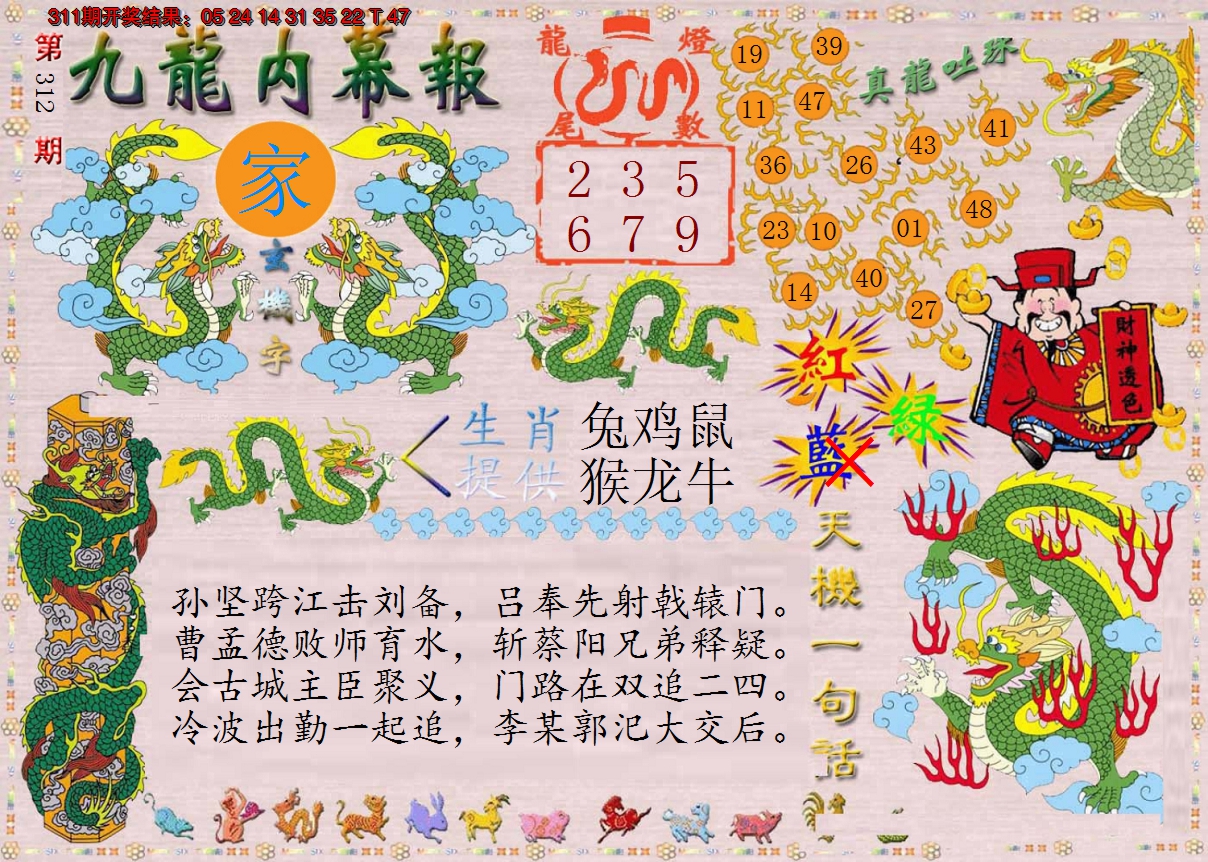 311期开奖结果：05 24 14 31 35 22 T 47
第312期
九龍内幕報
家
玄機字
龍燈尾數
2 3 5
6 7 9
真龍吐珠
19 39
11 47
36 26 43 41
23 10 01 48
14 40 27
財神透色
紅
綠
藍
生肖提供
兔鸡鼠
猴龙牛
天機一句话
孙坚跨江击刘备，吕奉先射戟辕门。
曹孟德败师育水，斩蔡阳兄弟释疑。
会古城主臣聚义，门路在双追二四。
冷波出勤一起追，李某郭汜大交后。